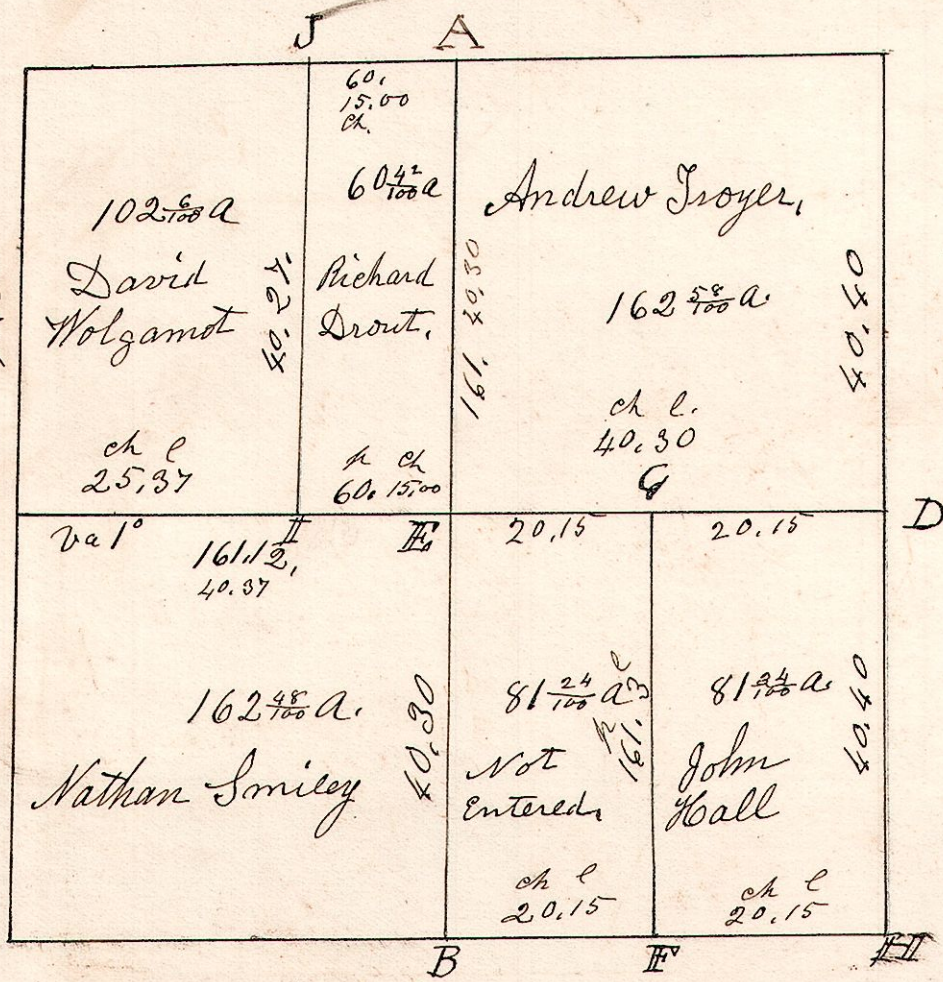 J
A
60.
15.00
ch.
60 42/100 a
102 6/100 a
David
Wolgamot
40.27.
25.37
ch l
Richard
Drout,
p ch
60. 15.00
161. 40.30
Andrew Troyer,
162 58/100 a.
40.40
ch l.
40.30
G
D
va 1°
I
161.12,
40.37
E.
20.15
20.15
162 48/100 a.
Nathan Smiley
40.30
81 24/100 a
Not
Entered,
ch l
20.15
81 24/100 a.
John
Hall
40.40
ch l
20.15
B
F
H